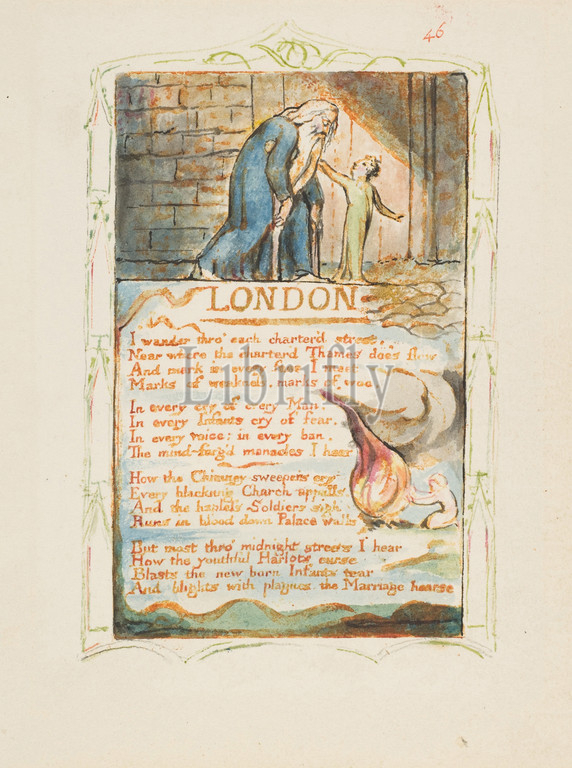 46
LONDON
I wander thro' each charter'd street,
Near where the charter'd Thames does flow
And mark in every face I meet
Marks of weakness, marks of woe.
In every cry of every Man,
In every Infants cry of fear,
In every voice; in every ban,
The mind-forg'd manacles I hear
How the Chimney-sweepers cry
Every blackning Church appalls,
And the hapless Soldiers sigh
Runs in blood down Palace walls
But most thro' midnight streets I hear
How the youthful Harlots curse
Blasts the new born Infants tear
And blights with plagues the Marriage hearse
Librifly